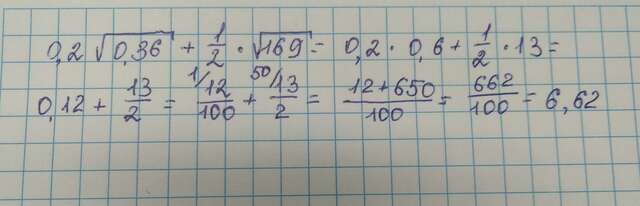 0,2 √0,36 + 1/2 · √169 = 0,2 · 0,6 + 1/2 · 13 =
0,12 + 13/2 = 1/ 12/100 + 50/ 13/2 = 12+650/100 = 662/100 = 6,62